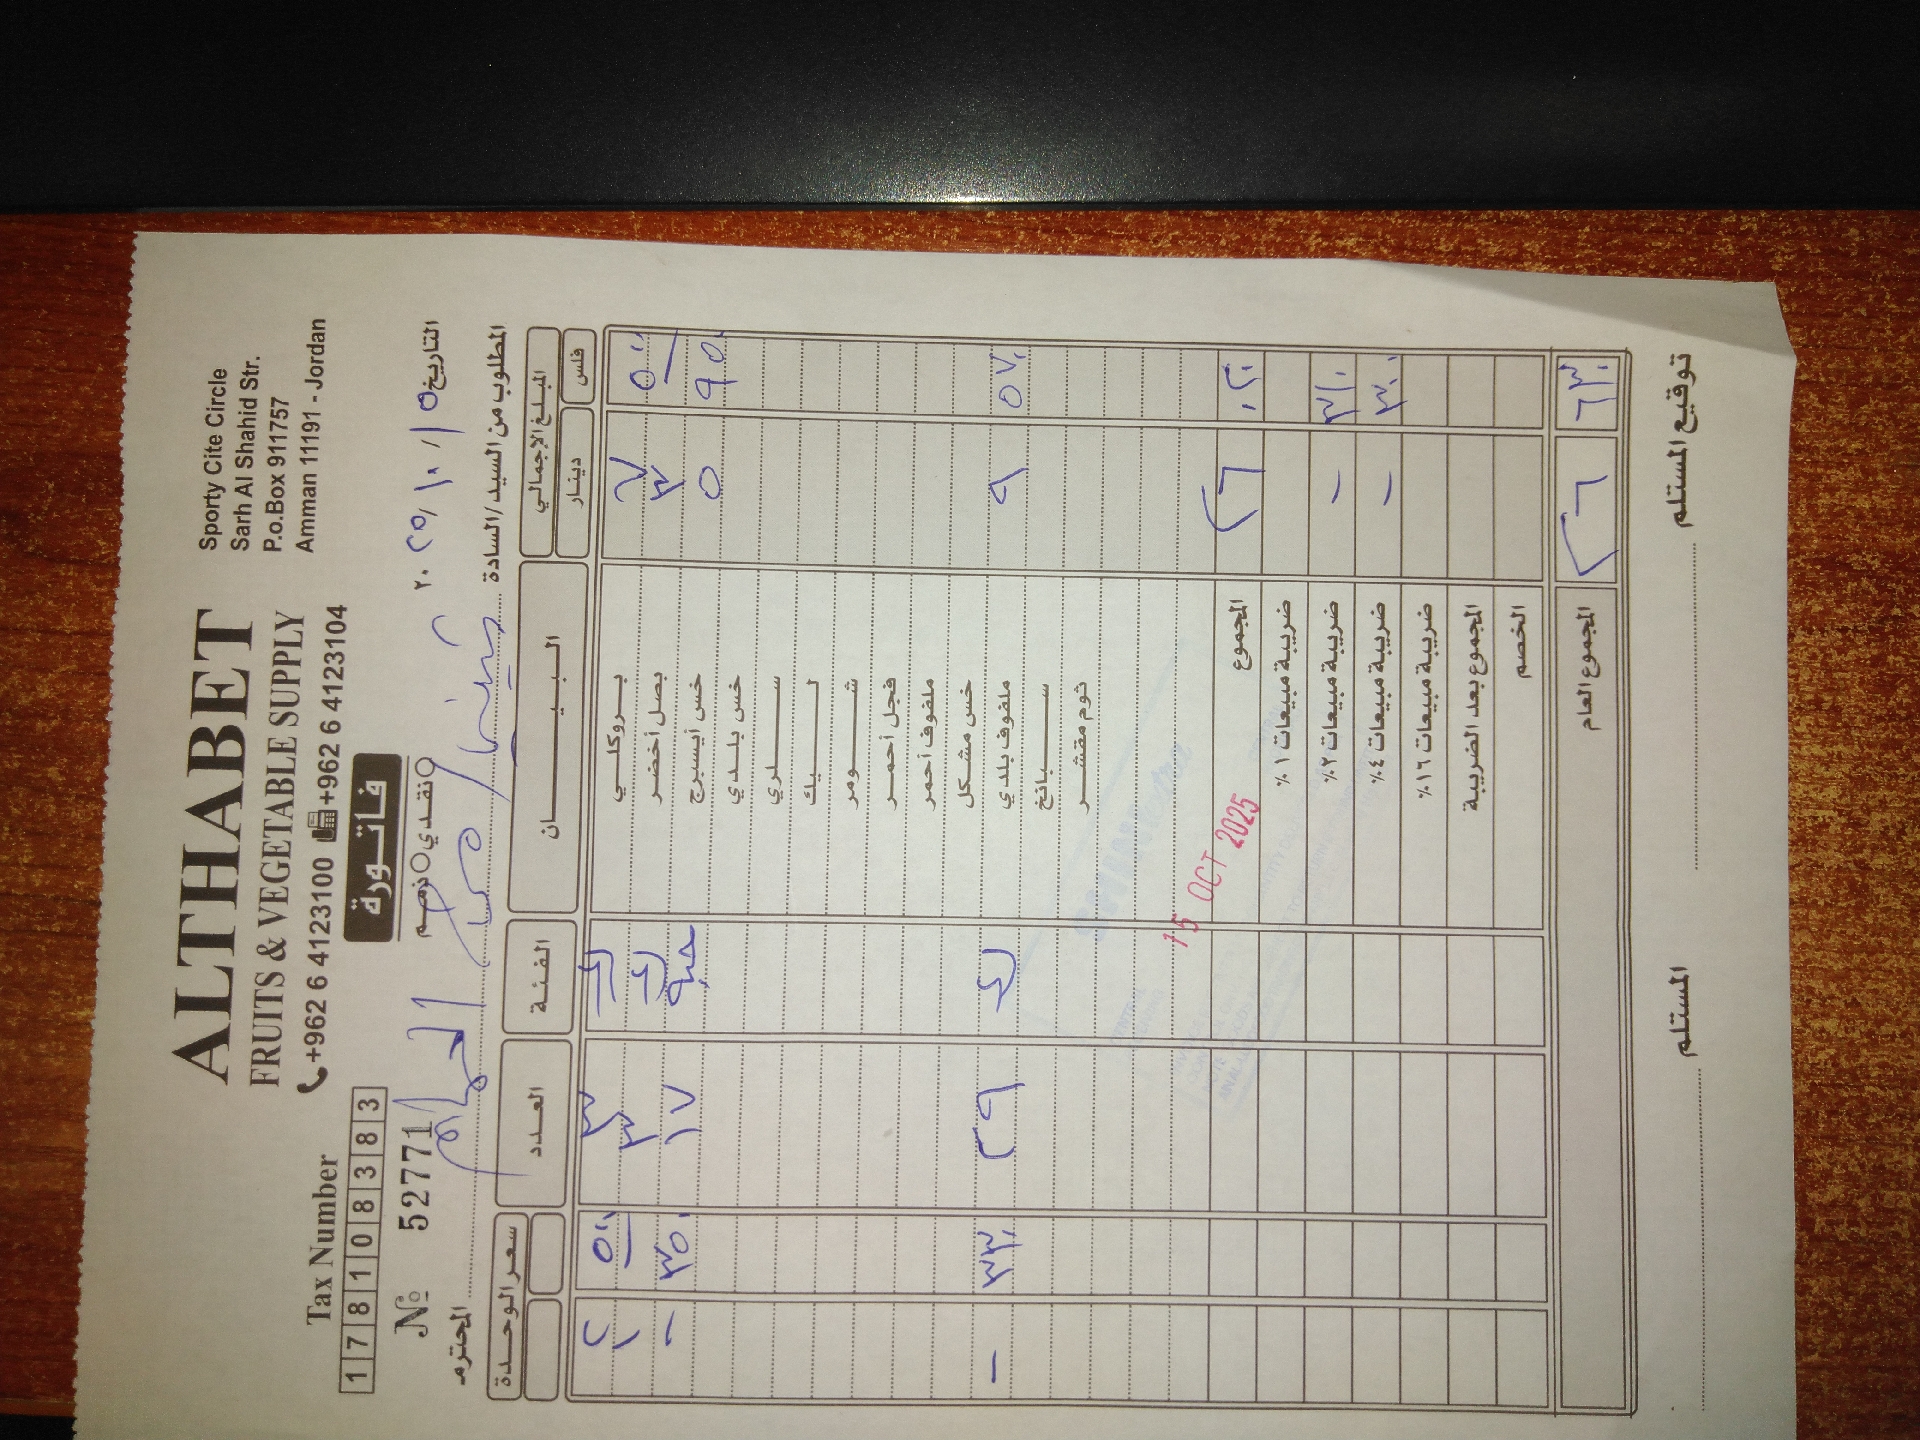 ALTHABET
FRUITS & VEGETABLE SUPPLY
+962 6 4123100 +962 6 4123104
Sporty Cite Circle
Sarh Al Shahid Str.
P.o.Box 911757
Amman 11191 - Jordan
Tax Number
1 7 8 1 0 8 3 8 3
فاتورة
№ 52771
ذمم نقدي
التاريخ ١٥ / ١٠ / ٢٠٢٥
المطلوب من السيد/السادة
المحترم
المبلغ الإجمالي البيان الفئة العدد سعر الوحدة
فلس دينار
٥٠٠ ٧ بروكلي ك ٣ ٥٠٠ ٢
٣ بصل أخضر ك ٣ ١
٩٥٠ ٥ خس أيسبرج حبه ١٧ ٣٥٠ -
خس بلدي
سلري
ليك
شومر
فجل أحمر
ملفوف أحمر
خس مشكل
٥٧٠ ٩ ملفوف بلدي ك ٢٩ ٣٣٠ -
سبانخ
ثوم مقشر
15 OCT 2025
٠٢٠ ٢٦ المجموع
ضريبة مبيعات ١٪
٣١٠ - ضريبة مبيعات ٢٪
٣٠٠ - ضريبة مبيعات ٤٪
ضريبة مبيعات ١٦٪
المجموع بعد الضريبة
الخصم
٦٣٠ ٢٦ المجموع العام
توقيع المستلم
المستلم